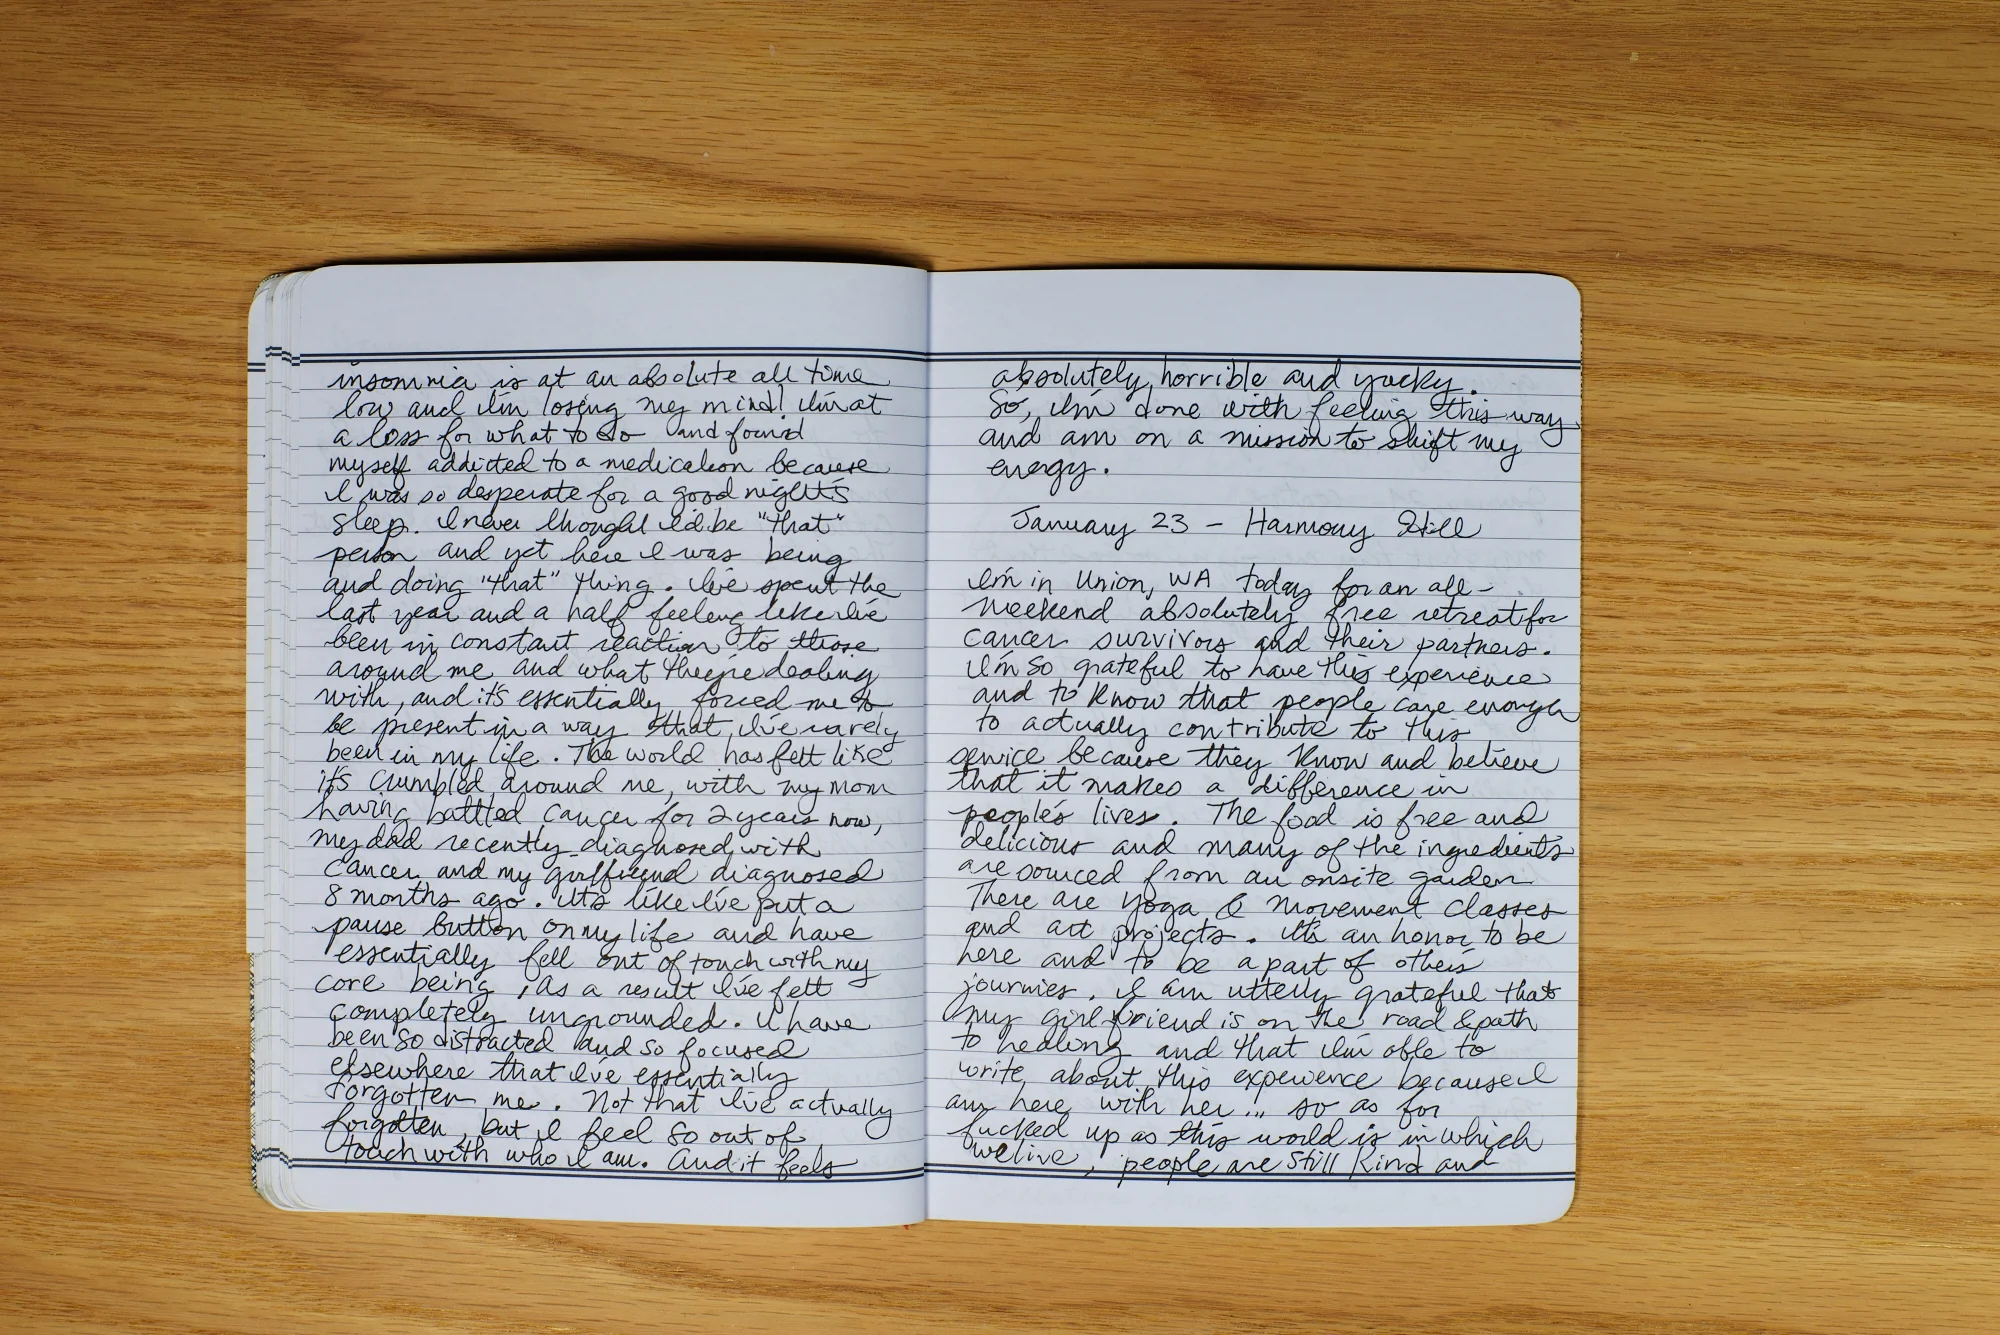 insomnia is at an absolute all time
low and I'm losing my mind! I'm at
a loss for what to do and found
myself addicted to a medication because
I was so desperate for a good night's
sleep. I never thought I'd be "that"
person and yet here I was being
and doing "that" thing. I've spent the
last year and a half feeling like I've
been in constant reaction to those
around me and what they're dealing
with, and it's essentially forced me to
be present in a way that I've rarely
been in my life. The world has felt like
it's crumbled around me, with my mom
having battled cancer for 2 years now,
my dad recently diagnosed with
cancer and my girlfriend diagnosed
8 months ago. It's like I've put a
pause button on my life and have
essentially fell out of touch with my
core being, As a result I've felt
completely ungrounded. I have
been so distracted and so focused
elsewhere that I've essentially
forgotten me. Not that I've actually
forgotten, but I feel so out of
touch with who I am. And it feels
absolutely horrible and yucky.
So, I'm done with feeling this way
and am on a mission to shift my
energy.
January 23 - Harmony Hill
I'm in Union, WA today for an all-
weekend absolutely free retreat for
cancer survivors and their partners.
I'm so grateful to have this experience
and to know that people care enough
to actually contribute to this
service because they know and believe
that it makes a difference in
people's lives. The food is free and
delicious and many of the ingredients
are sourced from an onsite garden
There are yoga & movement classes
and art projects. It's an honor to be
here and to be a part of others
journies. I am utterly grateful that
my girlfriend is on the road & path
to healing and that I'm able to
write about this experience because I
am here with her... so as for
fucked up as this world is in which
we live, people are still kind and